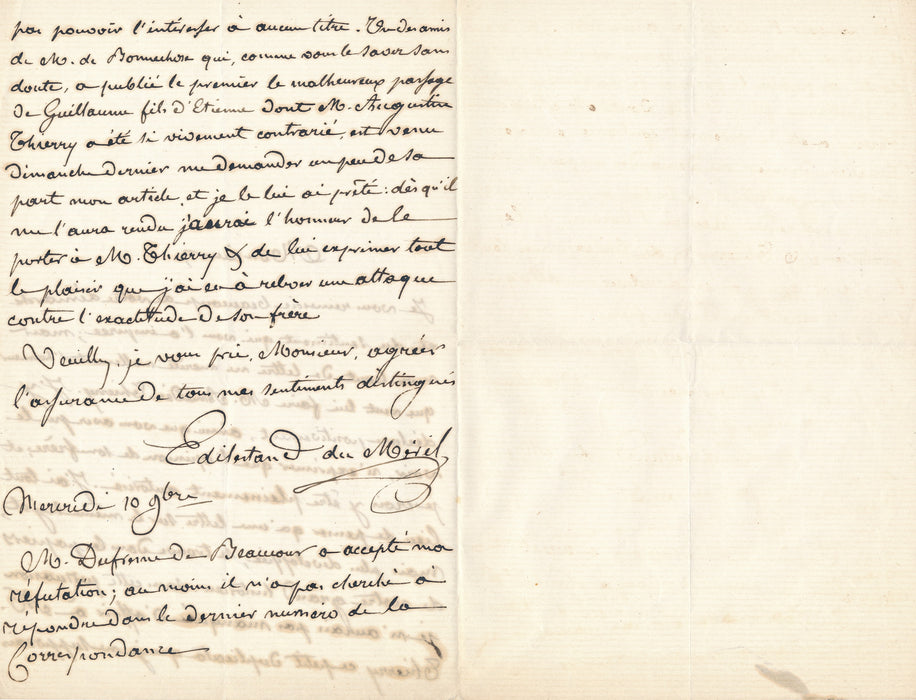 pas pouvoir l'intéresser à aucun titre. Un des amis
de M. de Bonnechose qui, comme vous le savez sans
doute, a publié le premier le malheureux passage
de Guillaume fils d'Etienne dont M. Augustin
Thierry a été si vivement contrarié, est venu
dimanche dernier me demander un peu de sa
part mon article, et je le lui ai prêté : dès qu'il
me l'aura rendu j'aurai l'honneur de le
porter à M. Thierry & de lui exprimer tout
le plaisir que j'ai eu à relever une attaque
contre l'exactitude de son frère
Veuillez, je vous prie, Monsieur, agréer
l'assurance de tous mes sentiments distingués
Edélestand du Méril
Mercredi 10 9bre
M. Dufresne de Beaucour a accepté ma
réfutation ; au moins il n'a pas cherché à
répondre dans le dernier numéro de la
Correspondance